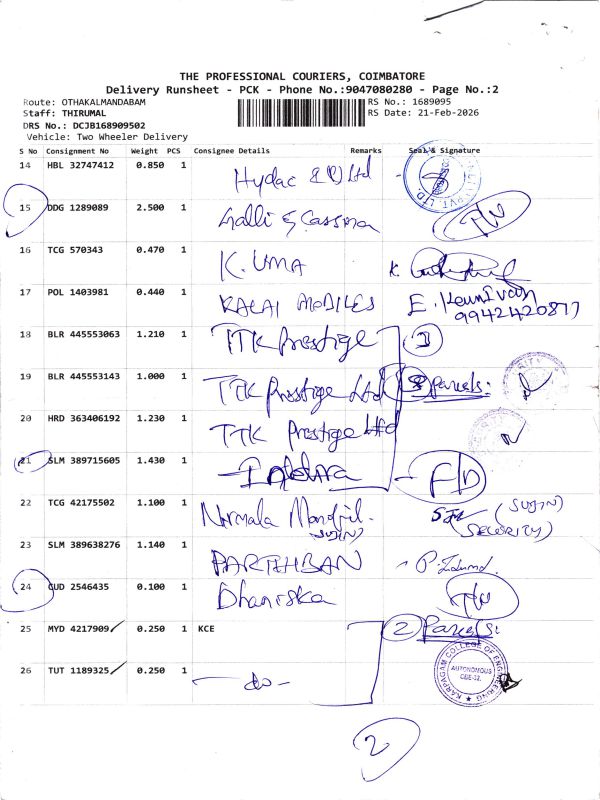 THE PROFESSIONAL COURIERS, COIMBATORE
Delivery Runsheet - PCK - Phone No.:9047080280 - Page No.:2
Route: OTHAKALMANDABAM
RS No.: 1689095
Staff: THIRUMAL
RS Date: 21-Feb-2026
DRS No.: DCJB168909502
Vehicle: Two Wheeler Delivery
S No Consignment No Weight PCS Consignee Details Remarks Seal & Signature
14 HBL 32747412 0.850 1 Hydac Ltd
15 DDG 1289089 2.500 1 Galli & Cassina
16 TCG 570343 0.470 1 K. UMA K.
17 POL 1403981 0.440 1 KALAI MOBILES E.
9942420877
18 BLR 445553063 1.210 1 TTK Prestige 3
19 BLR 445553143 1.000 1 TTK Prestige Ltd Parcels:
20 HRD 363406192 1.230 1 TTK Prestige Ltd
21 SLM 389715605 1.430 1
22 TCG 42175502 1.100 1 Nirmala (SUJIN)
(SUJIN) (SECURITY)
23 SLM 389638276 1.140 1 PARTHBAN
24 CUD 2546435 0.100 1 Dhaniska
25 MYD 4217909 0.250 1 KCE 2 Parcels:
26 TUT 1189325 0.250 1 - do -
KARPAGAM COLLEGE OF ENGINEERING
AUTONOMOUS
CBE-32.
2